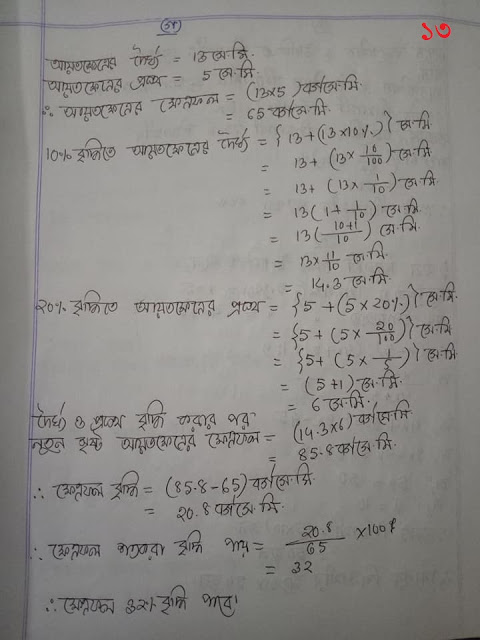 (গ)
১৩
আয়তক্ষেত্রের দৈর্ঘ্য = 13 সে.মি.
আয়তক্ষেত্রের প্রস্থ = 5 সে.মি.
∴ আয়তক্ষেত্রের ক্ষেত্রফল = (13×5) বর্গসে.মি.
= 65 বর্গসে.মি.
10% বৃদ্ধিতে আয়তক্ষেত্রের দৈর্ঘ্য = {13+(13×10%)} সে.মি.
= 13+ (13× 10/100) সে.মি.
= 13+ (13× 1/10) সে.মি.
= 13(1+ 1/10) সে.মি.
= 13(10+1/10) সে.মি.
= 13× 11/10 সে.মি.
= 14.3 সে.মি.
20% বৃদ্ধিতে আয়তক্ষেত্রের প্রস্থ = {5+(5×20%)} সে.মি.
= {5+ (5× 20/100)} সে.মি.
= {5+ (5× 1/5)} সে.মি.
= (5+1) সে.মি.
= 6 সে.মি.
দৈর্ঘ্য ও প্রস্থ বৃদ্ধি করার পর
নতুন সৃষ্ট আয়তক্ষেত্রের ক্ষেত্রফল = (14.3×6) বর্গসে.মি.
= 85.8 বর্গসে.মি.
∴ ক্ষেত্রফল বৃদ্ধি = (85.8-65) বর্গসে.মি.
= 20.8 বর্গসে.মি.
∴ ক্ষেত্রফল শতকরা বৃদ্ধি পায় = 20.8/65 ×100%
= 32
∴ ক্ষেত্রফল 32% বৃদ্ধি পাবে।